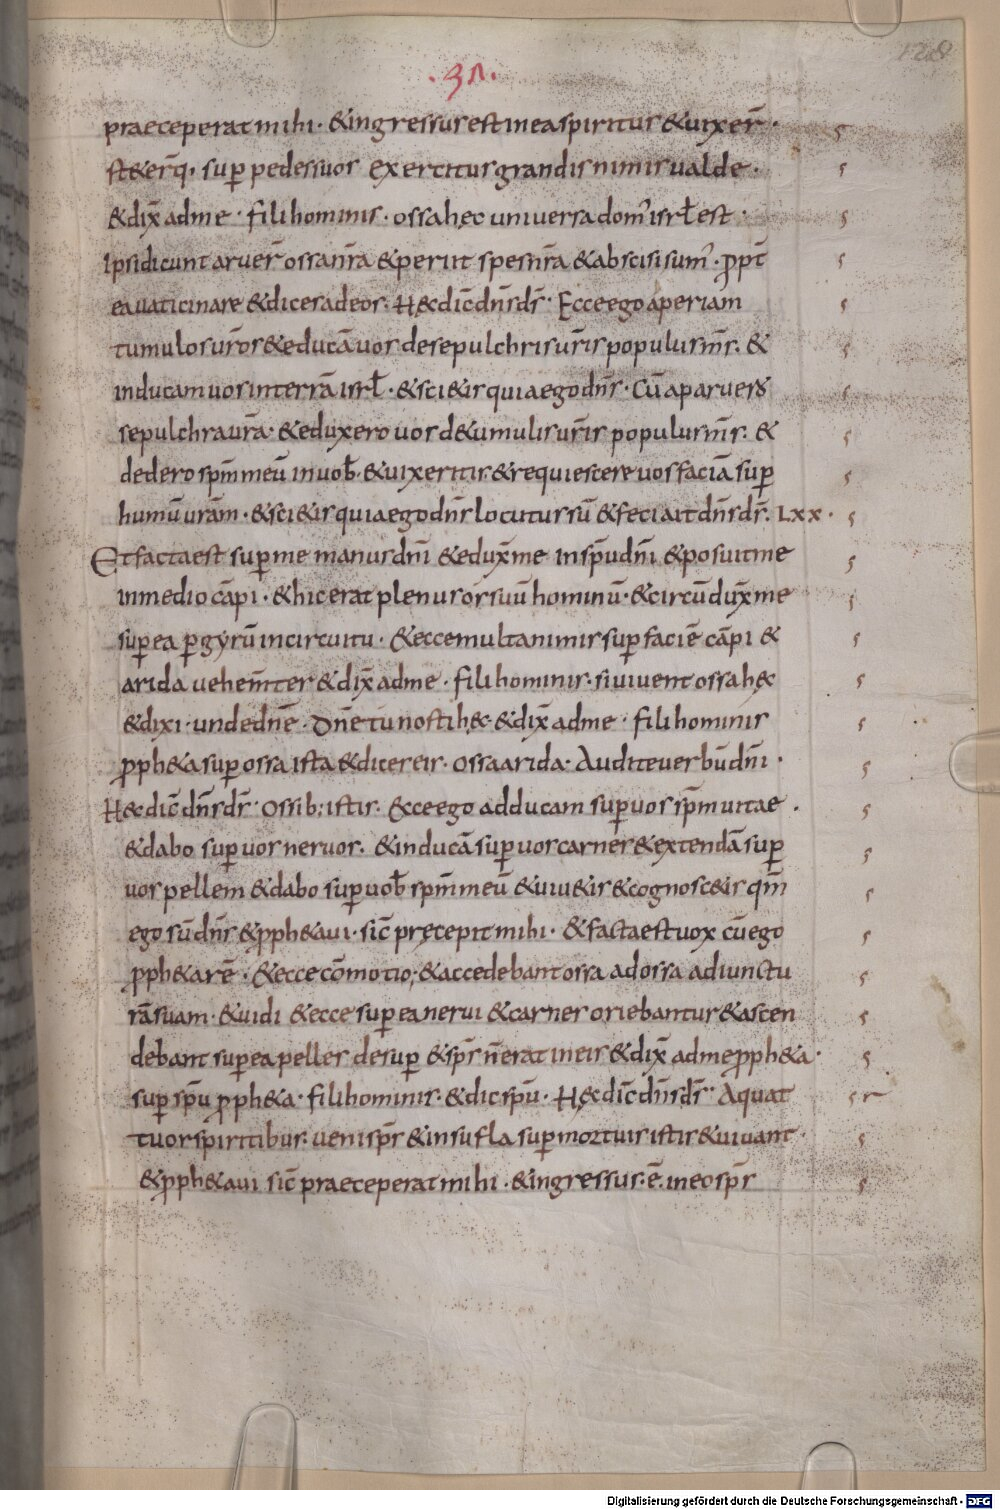 128
·31·
praeceperat mihi · & ingressus est in ea spiritus & uixer̄ ·
st&er̄q· sup̱ pedes suos exercitus grandis nimis ualde ·
& dix̄ ad me · fili hominis · ossa hęc uniuersa domꝰ isrł est ·
Ipsi dicunt aruer̄ ossa nr̄a & periit spes nr̄a & abscisi sumꝰ · ꝓpt̄
ea uaticinare & dices ad eos · Hęc dic̄ dn̄s ds̄ · Ecce ego aperiam
tumulos ur̄os & educā uos de sepulchris ur̄is populus ms̄ · &
inducam uos in terrā isrł · & sci&is quia ego dn̄s · Cū aparuero
sepulchra ur̄a · & eduxero uos de tumulis ur̄is populus ms̄ · &
dedero spm̄ meū in uob̄ · & uixeritis · & requiescere uos faciā sup̱
humū ur̄am · & sci&is quia ego dn̄s locutus sū & feci ait dn̄s ds̄ · Lxx ·
Et facta est sup̱ me manus dn̄i & edux̄ me in sp̄u dn̄i & posuit me
in medio cāpi · & hic erat plenus orsuū hominū · & circū dux̄ me
sup̱ ea p̱ gyrū in circuitu · & ecce multa nimis sup̱ faciē cāpi &
arida uehem̄ter & dix̄ ad me · fili hominis · si uiuent ossa hęc
& dixi · unde dn̄e · Dn̄e tu nosti hęc · & dix̄ ad me · fili hominis
ꝓph&a sup̱ ossa ista & dices eis · ossa arida · Audite uerbū dn̄i ·
Hęc dic̄ dn̄s ds̄ · Ossib; istis · Ecce ego adducam sup̱ uos spm̄ uitae ·
& dabo sup̱ uos neruos · & inducā sup̱ uos carnes & extendā sup̱
uos pellem & dabo sup̱ uob̄ spm̄ meū & uiu&is & cognosc&is qm̄
ego sū dn̄s & ꝓph&aui · sic̄ pręcepit mihi · & facta est uox cū ego
ꝓph&arē · & ecce cōmotio; & accedebant ossa ad ossa ad iunctu
rā suam · & uidi & ecce sup̱ ea nerui & carnes oriebantur & ascen
debant sup̱ ea pelles desup̱ & sps̄ n̄ erat in eis & dix̄ ad me ꝓph&a ·
sup̱ sp̄u ꝓph&a · fili hominis · & dic sp̄u · Hęc dic̄ dn̄s ds̄ · Aquat
tuor spiritibus · ueni sps̄ & insufla sup̱ mortuis istis & uiuant ·
& ꝓph&aui sic̄ praeceperat mihi · & ingressus · ē · in eo sps̄
Digitalisierung gefördert durch die Deutsche Forschungsgemeinschaft - DFG